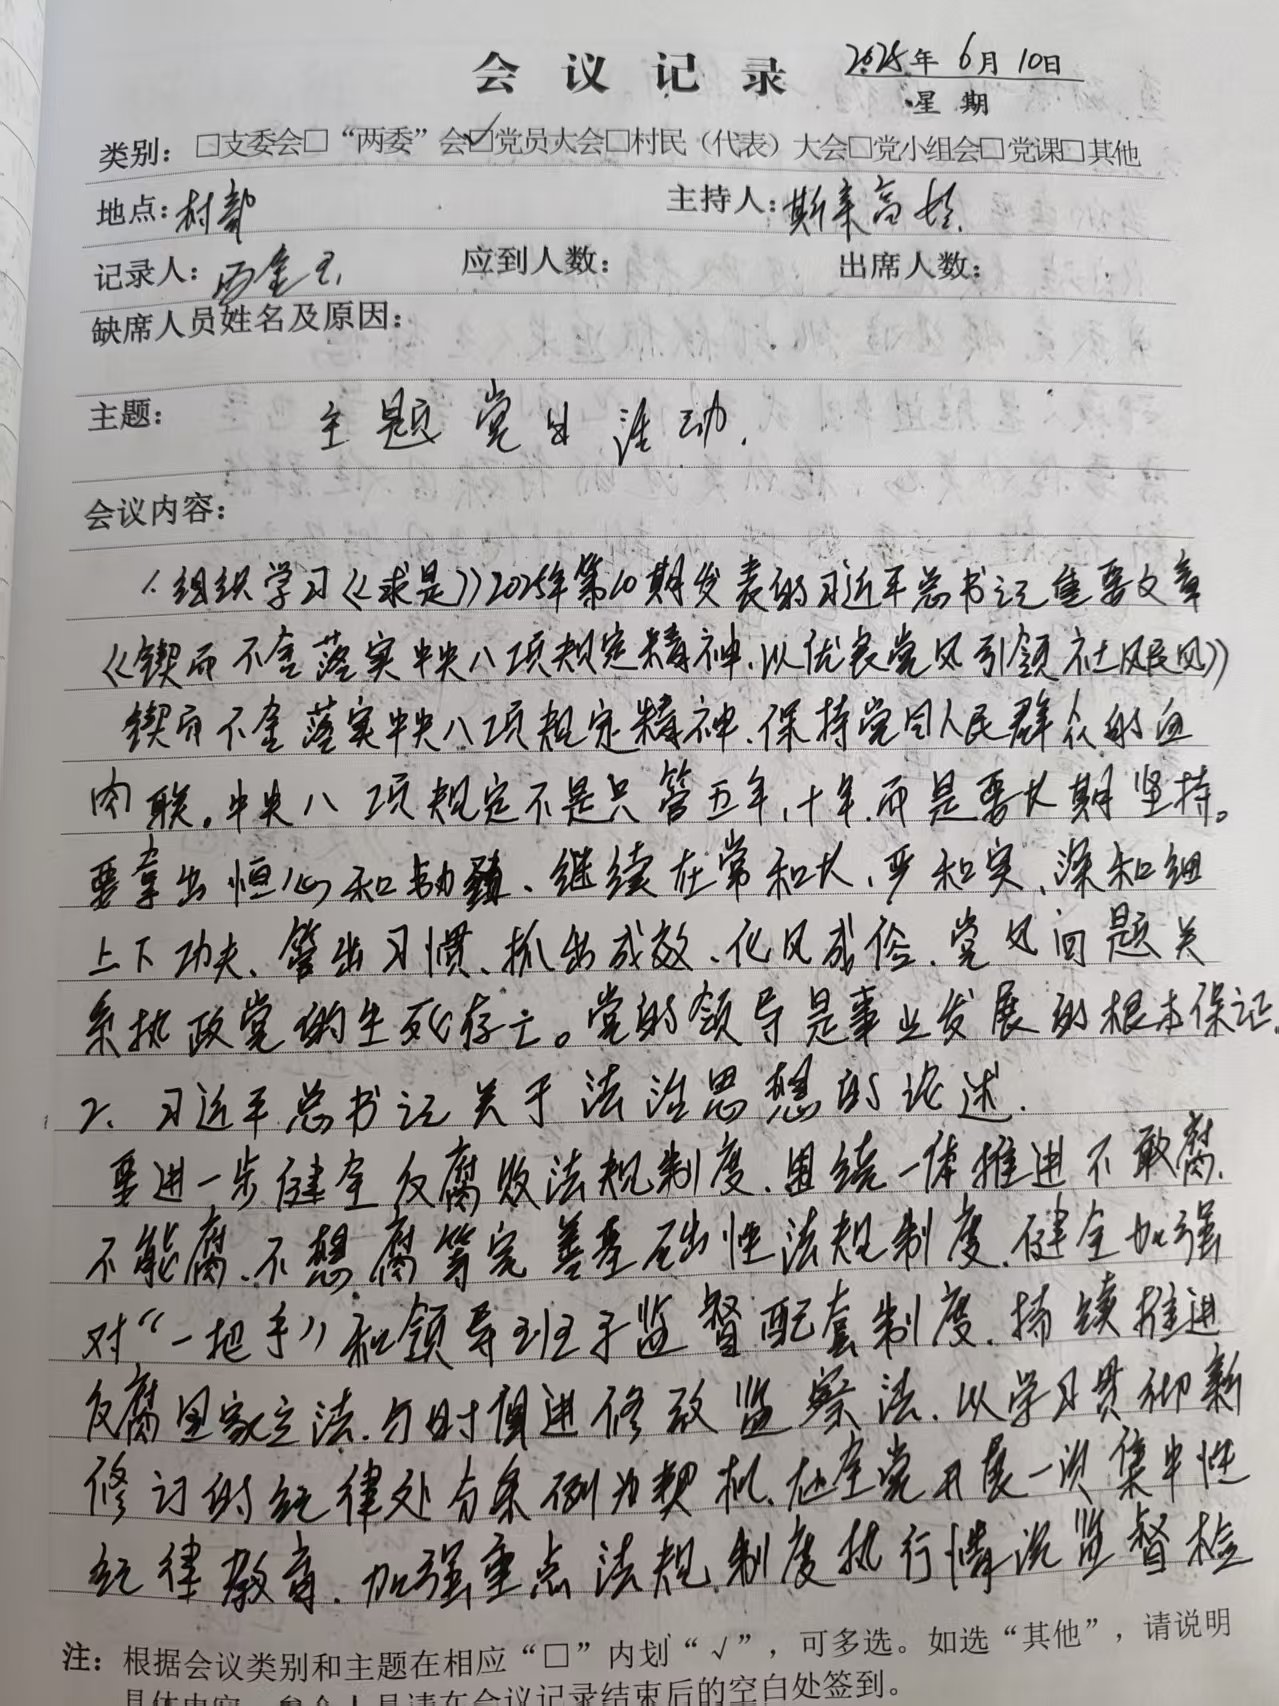 会议记录
2025年6月10日
星期
类别：□支委会□“两委”会☑党员大会□村民（代表）大会□党小组会□党课□其他
地点：村部
主持人：斯来高娃
记录人：
应到人数：
出席人数：
缺席人员姓名及原因：
主题：主题党日活动.
会议内容：
1.组织学习《求是》2025年第10期发表的习近平总书记重要文章
《锲而不舍落实中央八项规定精神、以优良党风引领社风民风》
锲而不舍落实中央八项规定精神、保持党同人民群众的血
肉联。中央八项规定不是只管五年、十年.而是要长期坚持。
要拿出恒心和韧劲、继续在常和长、严和实、深和细
上下功夫、管出习惯、抓出成效、化风成俗、党风问题关
系执政党的生死存亡。党的领导是事业发展的根本保证。
2、习近平总书记关于法治思想的论述.
要进一步健全反腐败法规制度、围绕一体推进不敢腐、
不能腐、不想腐等完善基础性法规制度、健全加强
对“一把手”和领导班子监督配套制度、持续推进
反腐国家立法、与时俱进修改监察法、以学习贯彻新
修订的纪律处分条例为契机、在全党开展一次集中性
纪律教育、加强重点法规制度执行情况监督检
注：根据会议类别和主题在相应“□”内划“√”，可多选。如选“其他”，请说明
具体内容。参会人员请在会议记录结束后的空白处签到。